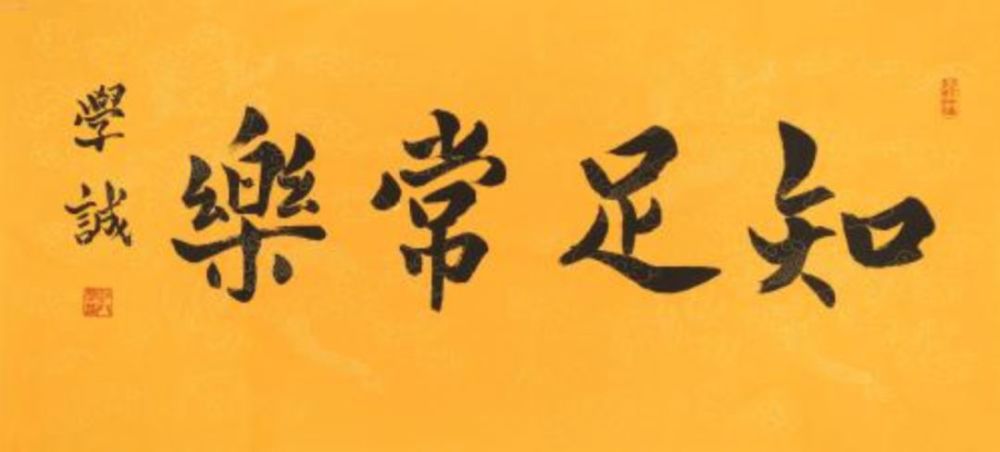 知足常樂
學誠